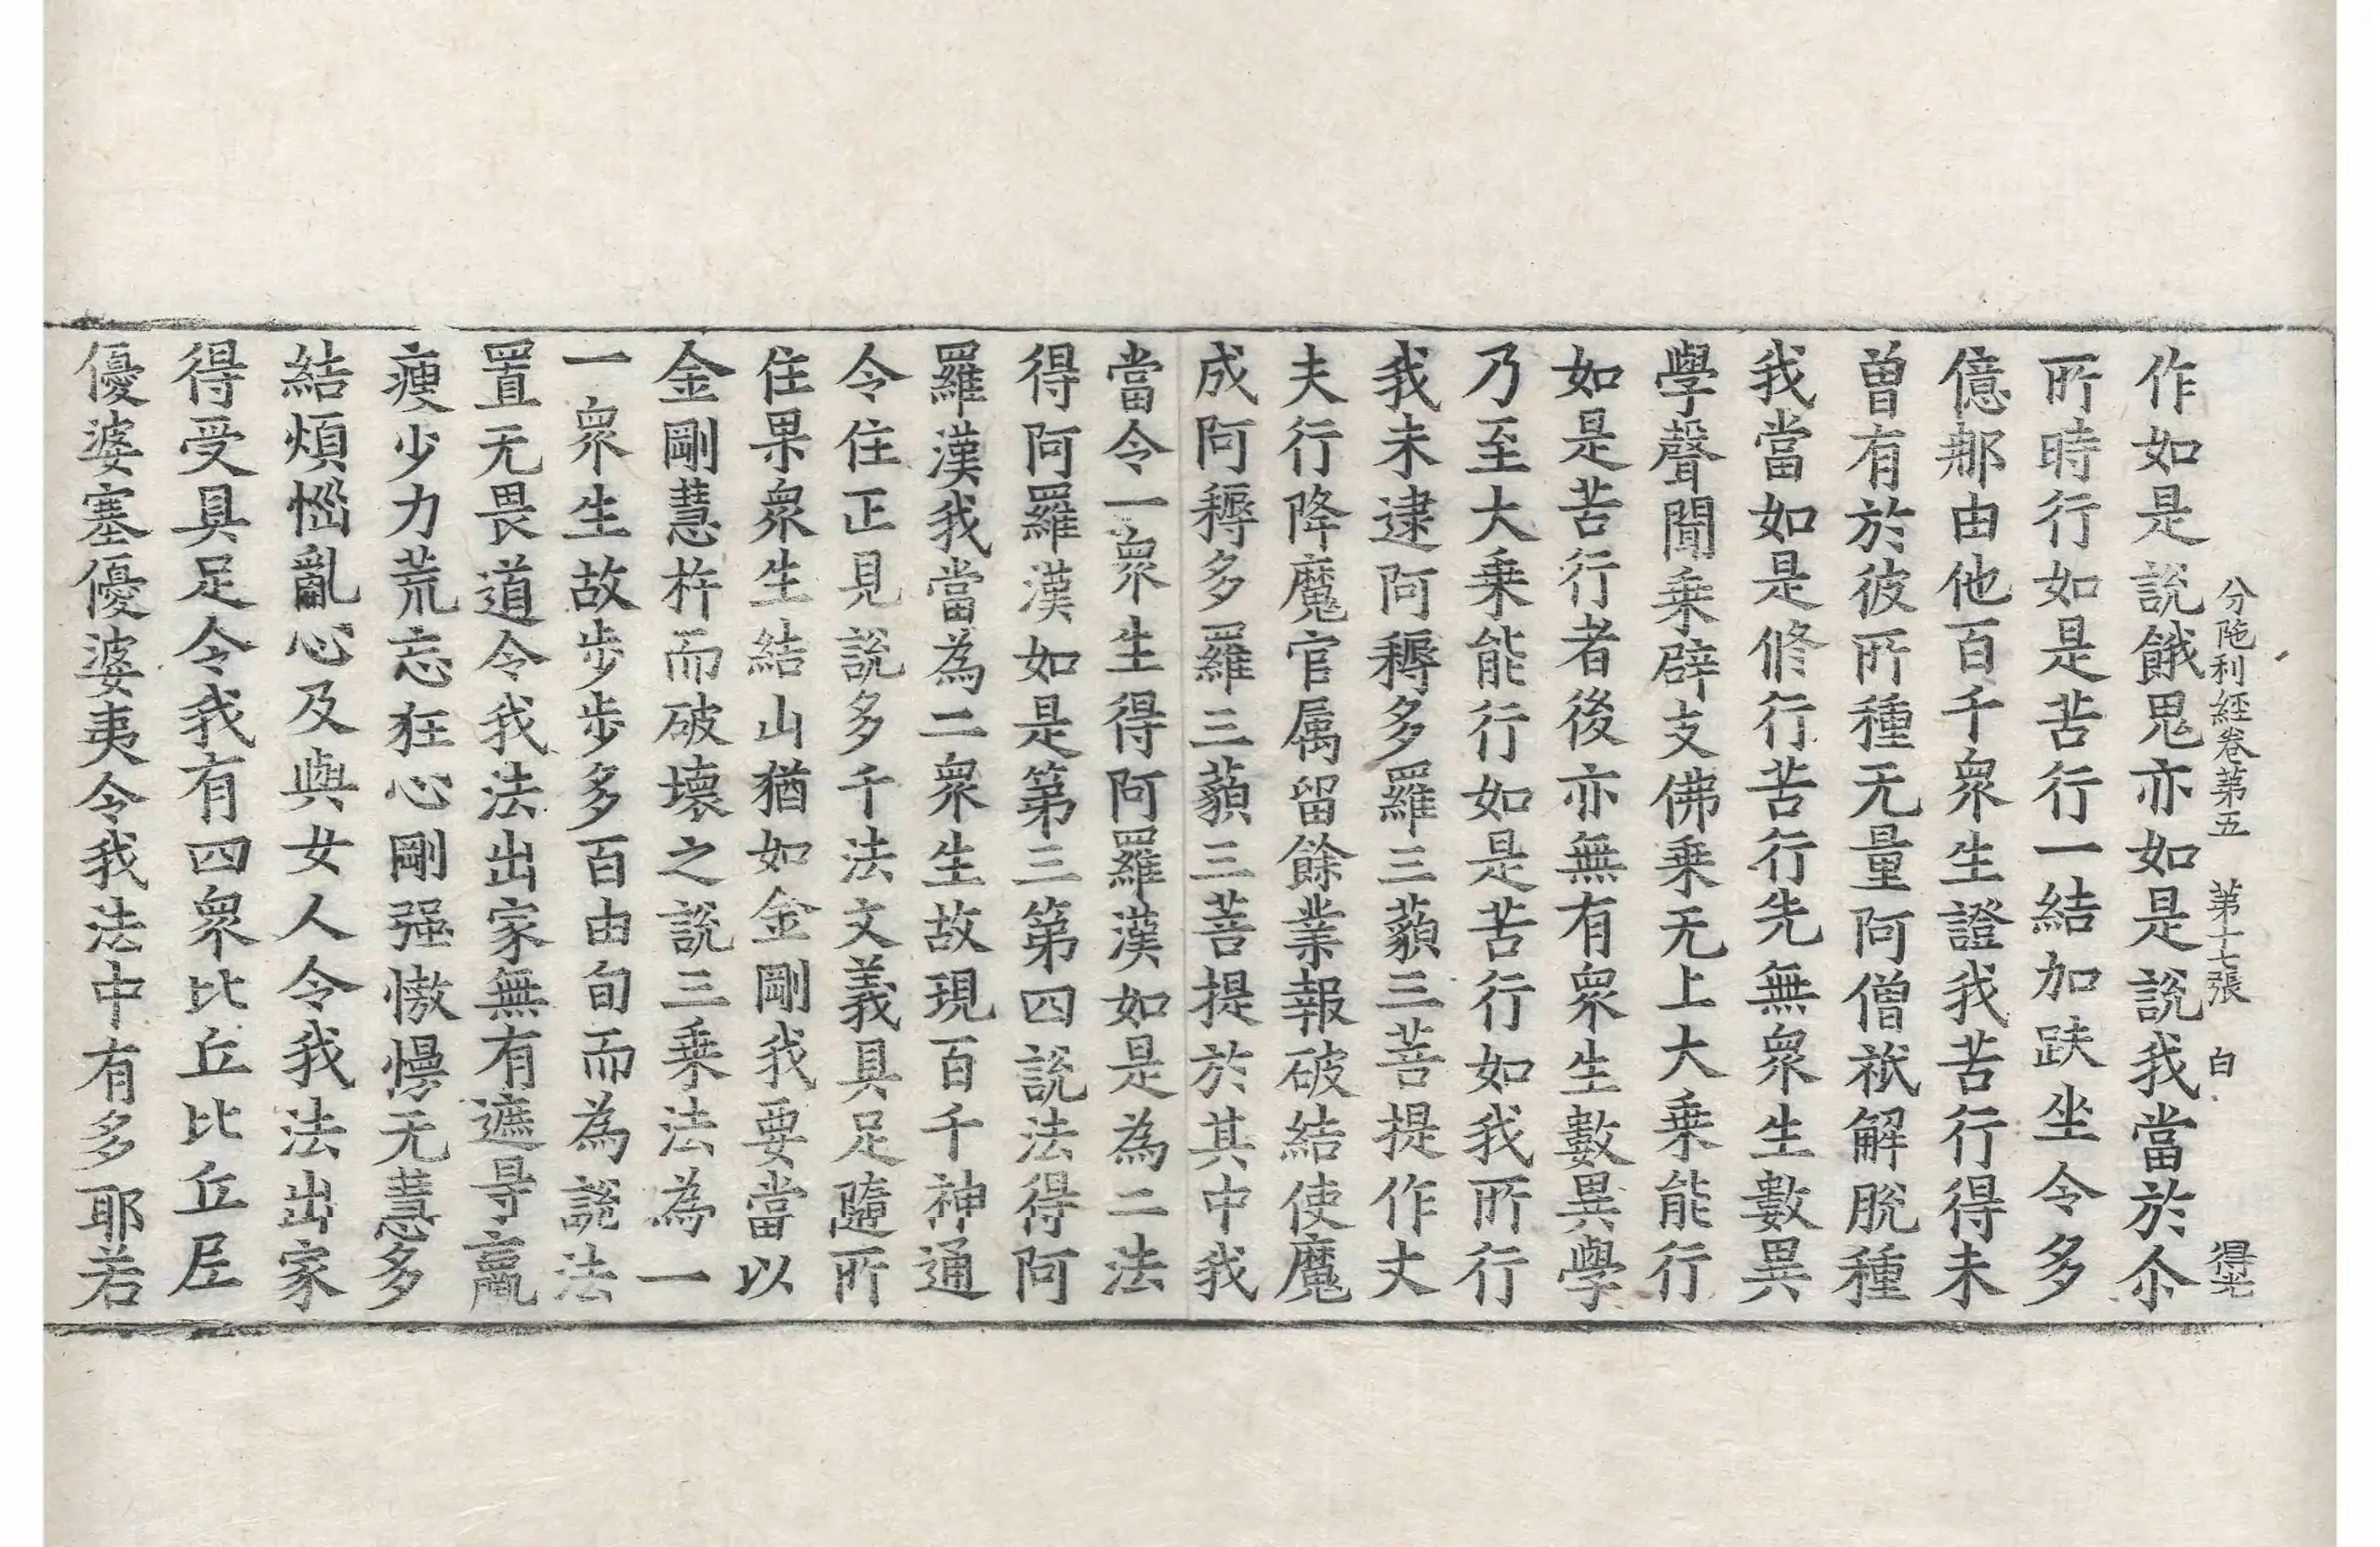 分陁利經卷第五　第十七張　白　得光
作如是說餓鬼亦如是說我當於尒
所時行如是苦行一結加趺坐令多
億那由他百千衆生證我苦行得未
曽有於彼所種无量阿僧祇解脫種
我當如是修行苦行先無衆生數異
學聲聞乗辟支佛乗无上大乗能行
如是苦行者後亦無有衆生數異學
乃至大乗能行如是苦行如我所行
我未逮阿耨多羅三藐三菩提作丈
夫行降魔官属留餘業報破結使魔
成阿耨多羅三藐三菩提於其中我
當令一衆生得阿羅漢如是為二法
得阿羅漢如是第三第四説法得阿
羅漢我當為二衆生故現百千神通
令住正見說多千法文義具足隨所
住果衆生結山猶如金剛我要當以
金剛慧杵而破壞之說三乗法為一
一衆生故步步多百由旬而為說法
置无畏道令我法出家無有遮㝵羸
瘦少力荒忘狂心剛强慠慢无慧多
結煩惱亂心及與女人令我法出家
得受具足令我有四衆比丘比丘尼
優婆塞優婆夷令我法中有多耶若